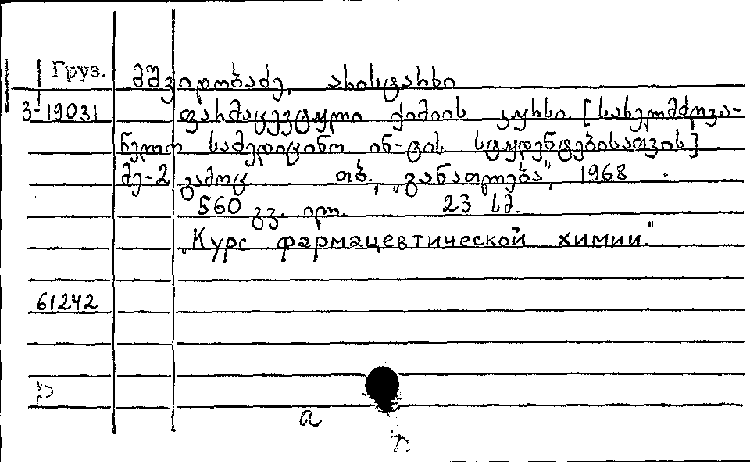 Груз. მშვიდობაძე, არისტარხი
3-19031 ფარმაცევტული ქიმიის კურსი. [სახელმძღვა-
ნელო სამედიცინო ინ-ტის სტუდენტებისათვის]
მე-2 გამოც. თბ., „განათლება", 1968.
560 გვ. ილ. 23 სმ.
„Курс фармацевтической химии."
61242
а